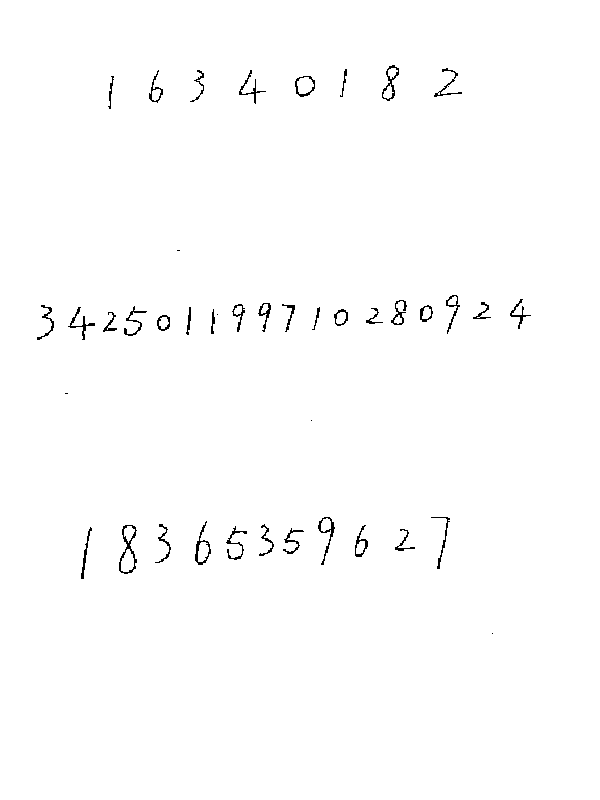 16340182
342501199710280924
18365359627